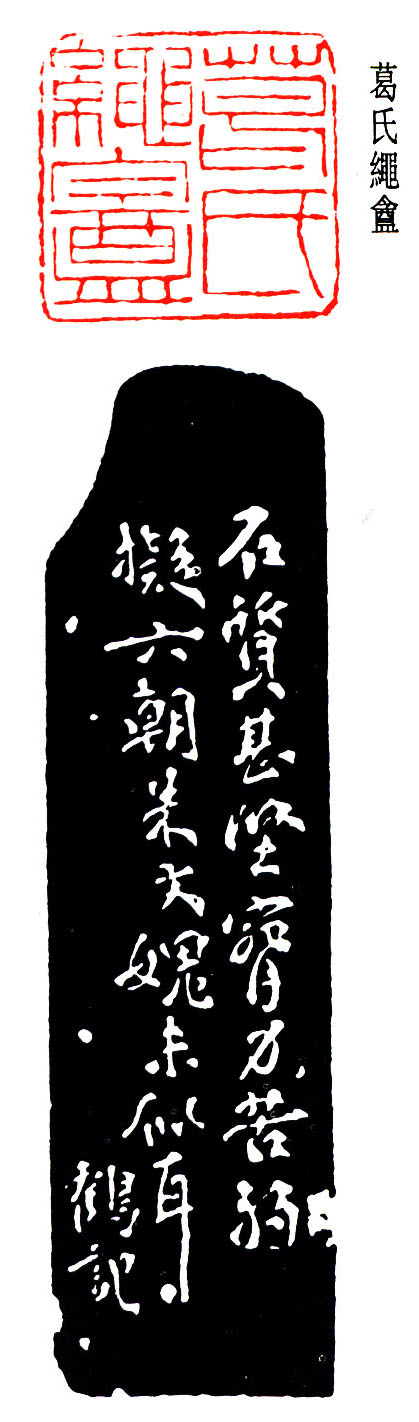 葛氏繩盦
葛氏
繩盦
石質甚堅膂力苦弱
擬六朝朱文媿未似耳
鶴記